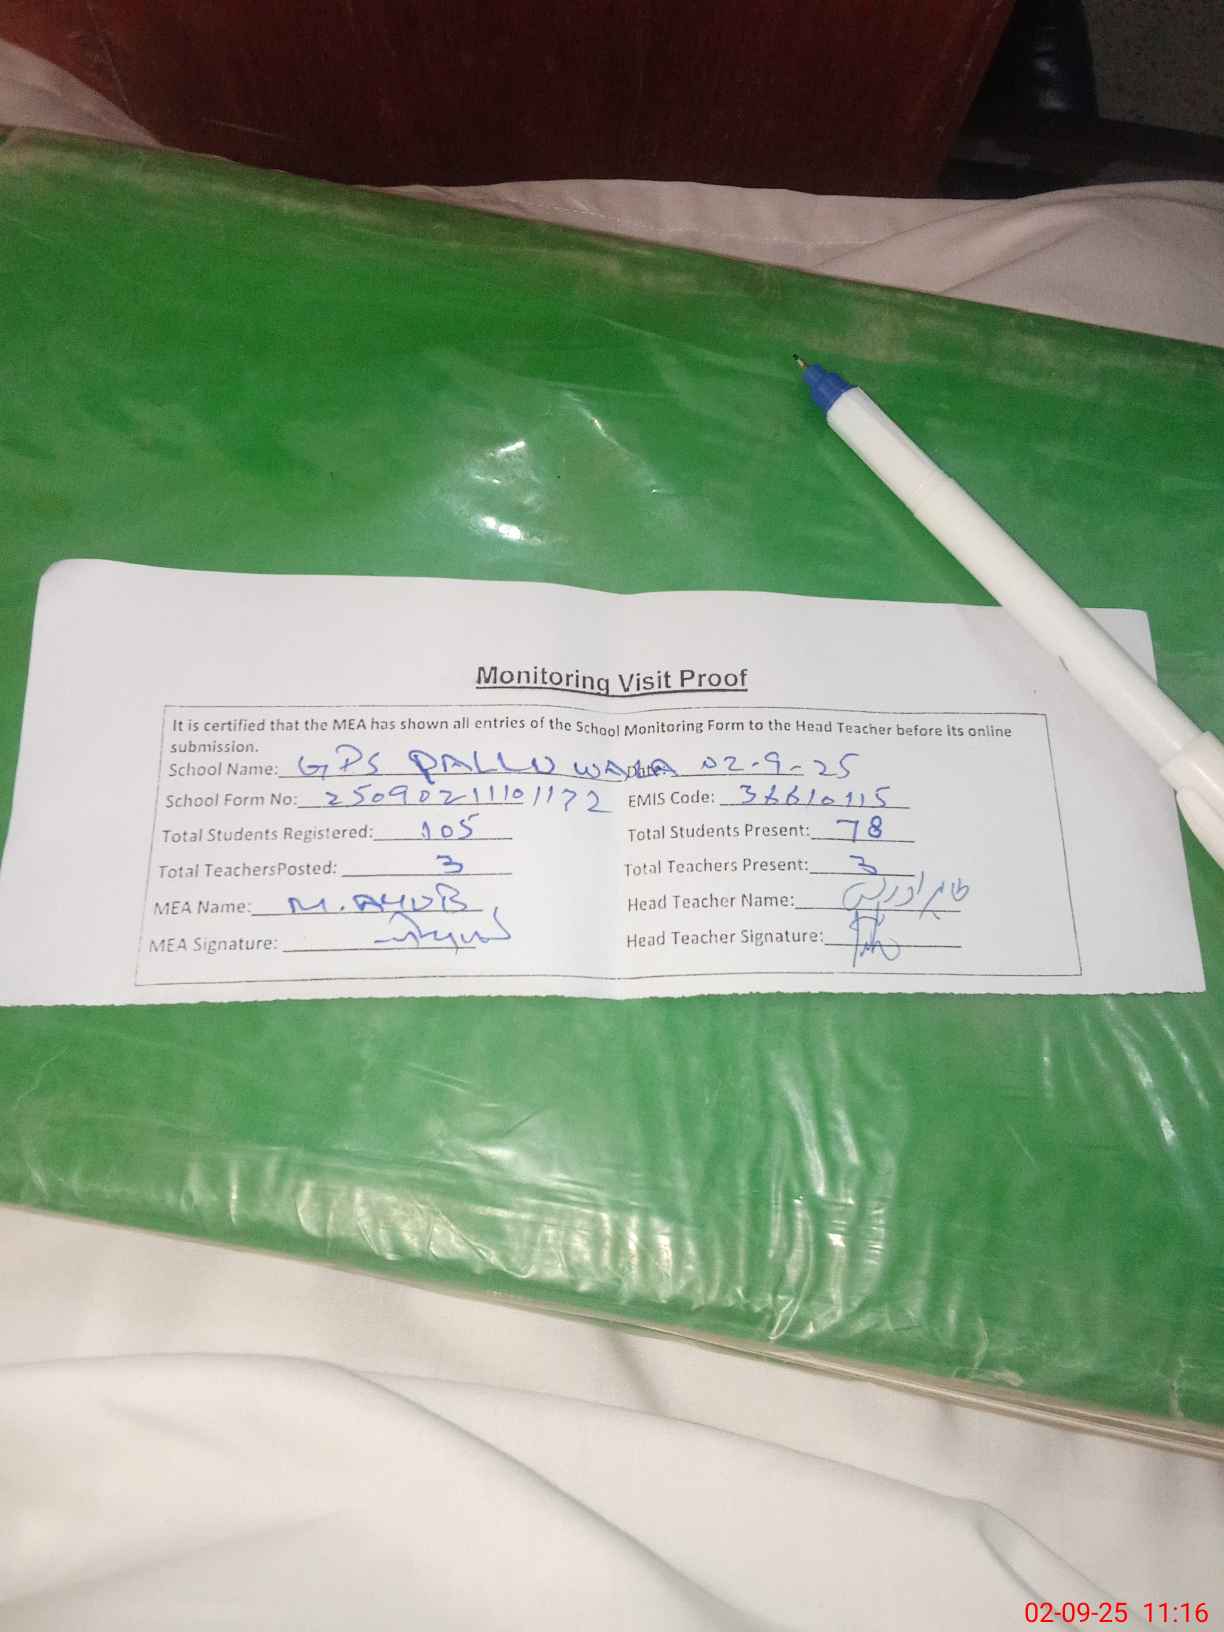 Monitoring Visit Proof
It is certified that the MEA has shown all entries of the School Monitoring Form to the Head Teacher before its online
submission.
School Name: GPS PALLU WALA Date 02-9-25
School Form No: 25090211101172 EMIS Code: 36610115
Total Students Registered: 105 Total Students Present: 78
Total TeachersPosted: 3 Total Teachers Present: 3
MEA Name: M. AYUB Head Teacher Name:
MEA Signature: Head Teacher Signature:
02-09-25 11:16